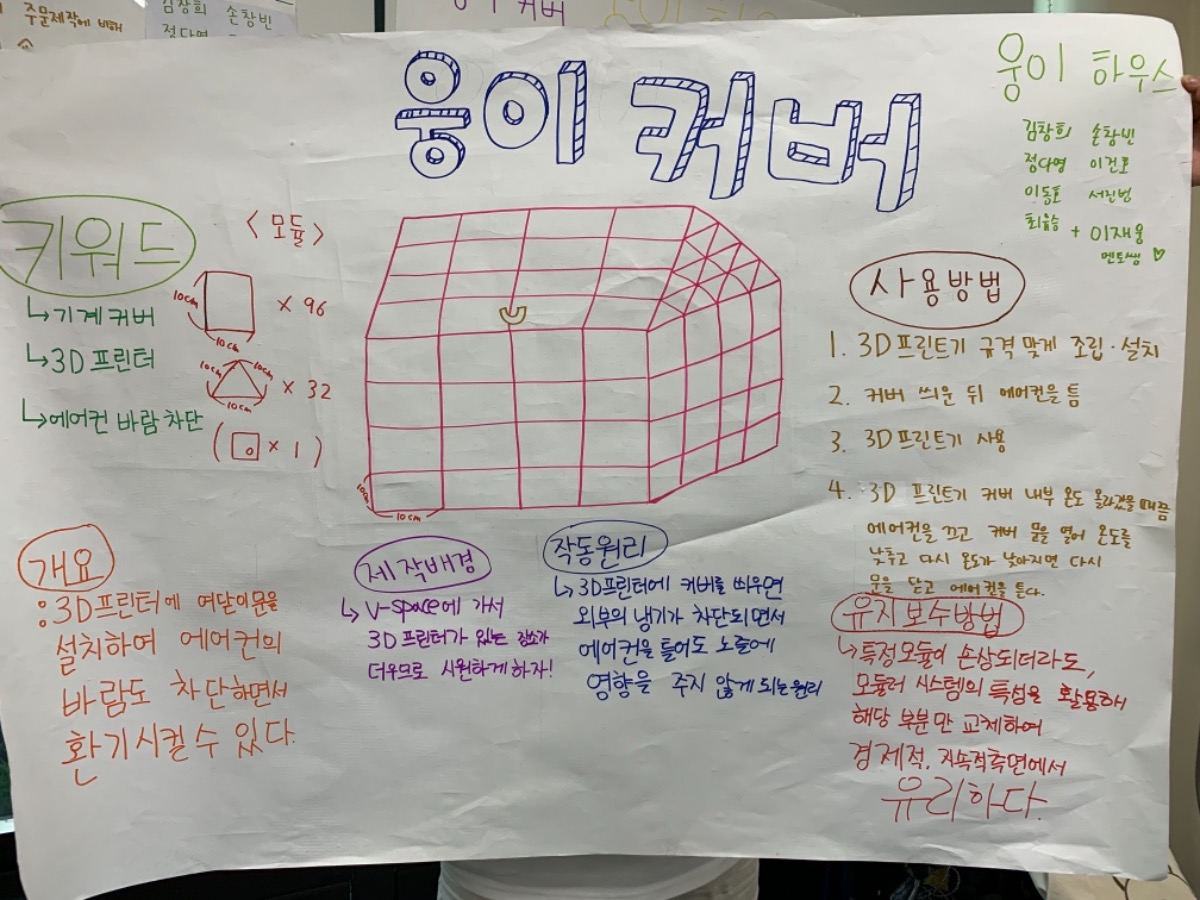 주문제작에 비해
김창희 손창빈
정다영
커버
웅이 커버
웅이 하우스
김창희 손창빈
정다영 이건호
이동호 서진범
최유승 + 이재웅
멘토쌤 ♡
키워드
↳기계 커버
↳3D 프린터
↳에어컨 바람 차단
<모듈>
10cm
10cm
× 96
10cm 10cm
10cm
× 32
( × 1 )
10cm
10cm
사용방법
1. 3D 프린트기 규격 맞게 조립·설치
2. 커버 씌운 뒤 에어컨을 틈
3. 3D 프린트기 사용
4. 3D 프린트기 커버 내부 온도 올라갔을 때쯤
에어컨을 끄고 커버 문을 열어 온도를
낮추고 다시 온도가 낮아지면 다시
문을 닫고 에어컨을 튼다.
개요
: 3D프린터에 여닫이문을
설치하여 에어컨의
바람도 차단하면서
환기시킬 수 있다.
제작배경
↳ V-space에 가서
3D 프린터가 있는 장소가
더우므로 시원하게 하자!
작동원리
↳3D프린터에 커버를 씌우면
외부의 냉기가 차단되면서
에어컨을 틀어도 노즐에
영향을 주지 않게 되는 원리
유지보수방법
↳특정모듈이 손상되더라도,
모듈러 시스템의 특성을 활용해
해당 부분만 교체하여
경제적, 지속적측면에서
유리하다.